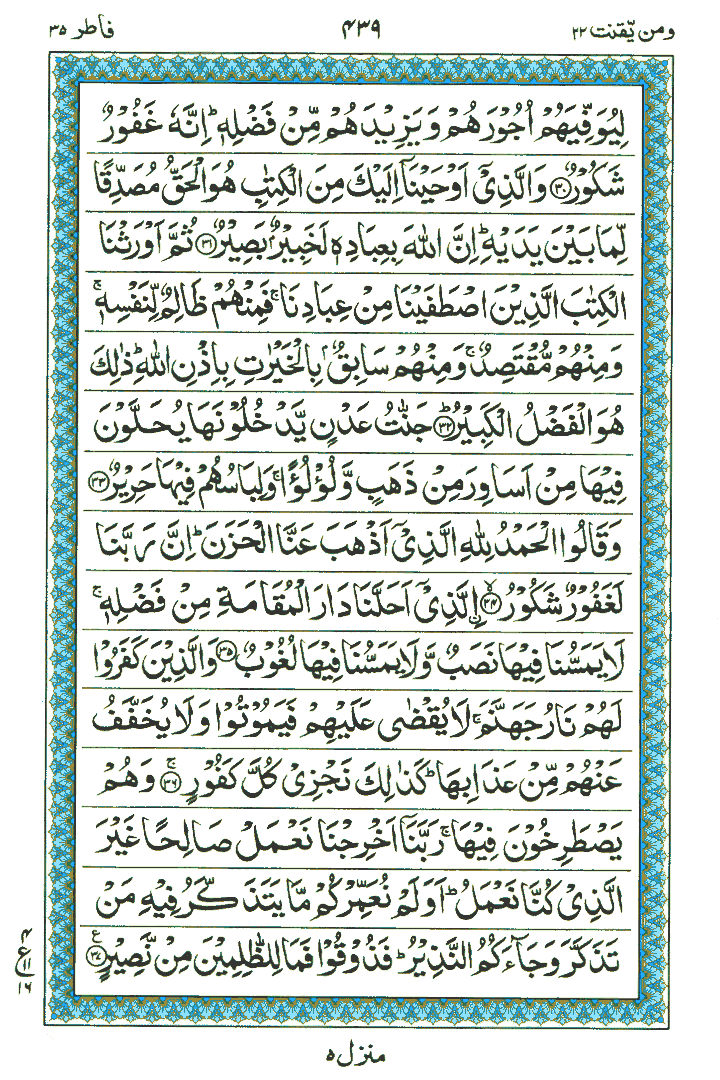 ومن یّقنت ۲۲ ۴۳۹ فاطر ۳۵
لِیُوَفِّیَهُمْ اُجُوْرَهُمْ وَیَزِیْدَهُمْ مِّنْ فَضْلِهٖ ؕ اِنَّهٗ غَفُوْرٌ
شَكُوْرٌ ﴿۳۰﴾ وَالَّذِیْۤ اَوْحَیْنَاۤ اِلَیْكَ مِنَ الْكِتٰبِ هُوَ الْحَقُّ مُصَدِّقًا
لِّمَا بَیْنَ یَدَیْهِ ؕ اِنَّ اللّٰهَ بِعِبَادِهٖ لَخَبِیْرٌۢ بَصِیْرٌ ﴿۳۱﴾ ثُمَّ اَوْرَثْنَا
الْكِتٰبَ الَّذِیْنَ اصْطَفَیْنَا مِنْ عِبَادِنَا ۚ فَمِنْهُمْ ظَالِمٌ لِّنَفْسِهٖ ۚ
وَمِنْهُمْ مُّقْتَصِدٌ ۚ وَمِنْهُمْ سَابِقٌۢ بِالْخَیْرٰتِ بِاِذْنِ اللّٰهِ ؕ ذٰلِكَ
هُوَ الْفَضْلُ الْكَبِیْرُ ﴿۳۲﴾ؕ جَنّٰتُ عَدْنٍ یَّدْخُلُوْنَهَا یُحَلَّوْنَ
فِیْهَا مِنْ اَسَاوِرَ مِنْ ذَهَبٍ وَّلُؤْلُؤًا ۚ وَلِبَاسُهُمْ فِیْهَا حَرِیْرٌ ﴿۳۳﴾
وَقَالُوا الْحَمْدُ لِلّٰهِ الَّذِیْۤ اَذْهَبَ عَنَّا الْحَزَنَ ؕ اِنَّ رَبَّنَا
لَغَفُوْرٌ شَكُوْرُ ﴿۳۴﴾ۙ اِ۟لَّذِیْۤ اَحَلَّنَا دَارَ الْمُقَامَةِ مِنْ فَضْلِهٖ ۚ
لَا یَمَسُّنَا فِیْهَا نَصَبٌ وَّلَا یَمَسُّنَا فِیْهَا لُغُوْبٌ ﴿۳۵﴾ وَالَّذِیْنَ كَفَرُوْا
لَهُمْ نَارُ جَهَنَّمَ ۚ لَا یُقْضٰی عَلَیْهِمْ فَیَمُوْتُوْا وَلَا یُخَفَّفُ
عَنْهُمْ مِّنْ عَذَابِهَا ؕ كَذٰلِكَ نَجْزِیْ كُلَّ كَفُوْرٍ ﴿۳۶﴾ۚ وَهُمْ
یَصْطَرِخُوْنَ فِیْهَا ۚ رَبَّنَاۤ اَخْرِجْنَا نَعْمَلْ صَالِحًا غَیْرَ
الَّذِیْ كُنَّا نَعْمَلُ ؕ اَوَلَمْ نُعَمِّرْكُمْ مَّا یَتَذَكَّرُ فِیْهِ مَنْ
تَذَكَّرَ وَجَآءَكُمُ النَّذِیْرُ ؕ فَذُوْقُوْا فَمَا لِلظّٰلِمِیْنَ مِنْ نَّصِیْرٍ ﴿۳۷﴾ ع
۴
ع ۱۱
۱۶
منزل ۵